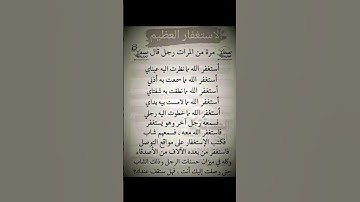 الاستغفار العظيم
مرة من المرات رجل قال
أستغفر الله مما نظرت اليه عيناي
أستغفر الله مما سمعت به أذني
أستغفر الله مما نطقت به شفتاي
أستغفر الله مما لامست بيه يداي
أستغفر الله مما خطوت اليه رجلي
فسمعه رجل آخر وهو يستغفر
فاستغفر الله معه ، فسمعهم شاب
فكتب الإستغفار على مواقع التوصل
فاستغفر من بعده الآلاف من الأصدقاء
وكله في ميزان حسنات الرجل وذلك الشاب
حتى وصلت إليك أنت ، فهل ستقف عندك؟